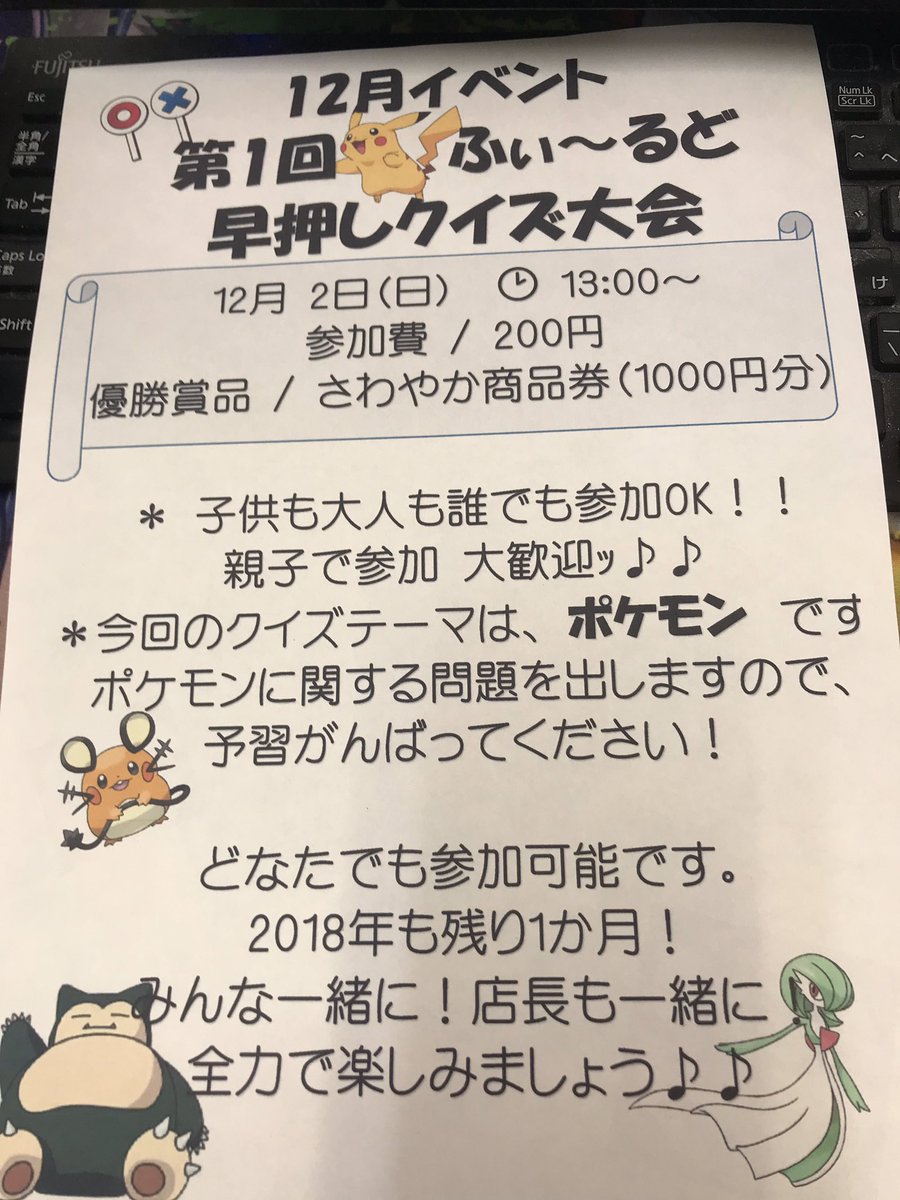 FUJITSU
Esc
半角/
全角
漢字
Tab
Caps Lo
英数
Shift
Num Lk
Scr Lk
け
12月イベント
第1回 ふぃ~るど
早押しクイズ大会
12月 2日(日) 13:00~
参加費 / 200円
優勝賞品 / さわやか商品券(1000円分)
* 子供も大人も誰でも参加OK!!
親子で参加 大歓迎ッ♪♪
*今回のクイズテーマは、ポケモン です
ポケモンに関する問題を出しますので、
予習がんばってください!
どなたでも参加可能です。
2018年も残り1か月!
みんな一緒に!店長も一緒に
全力で楽しみましょう♪♪